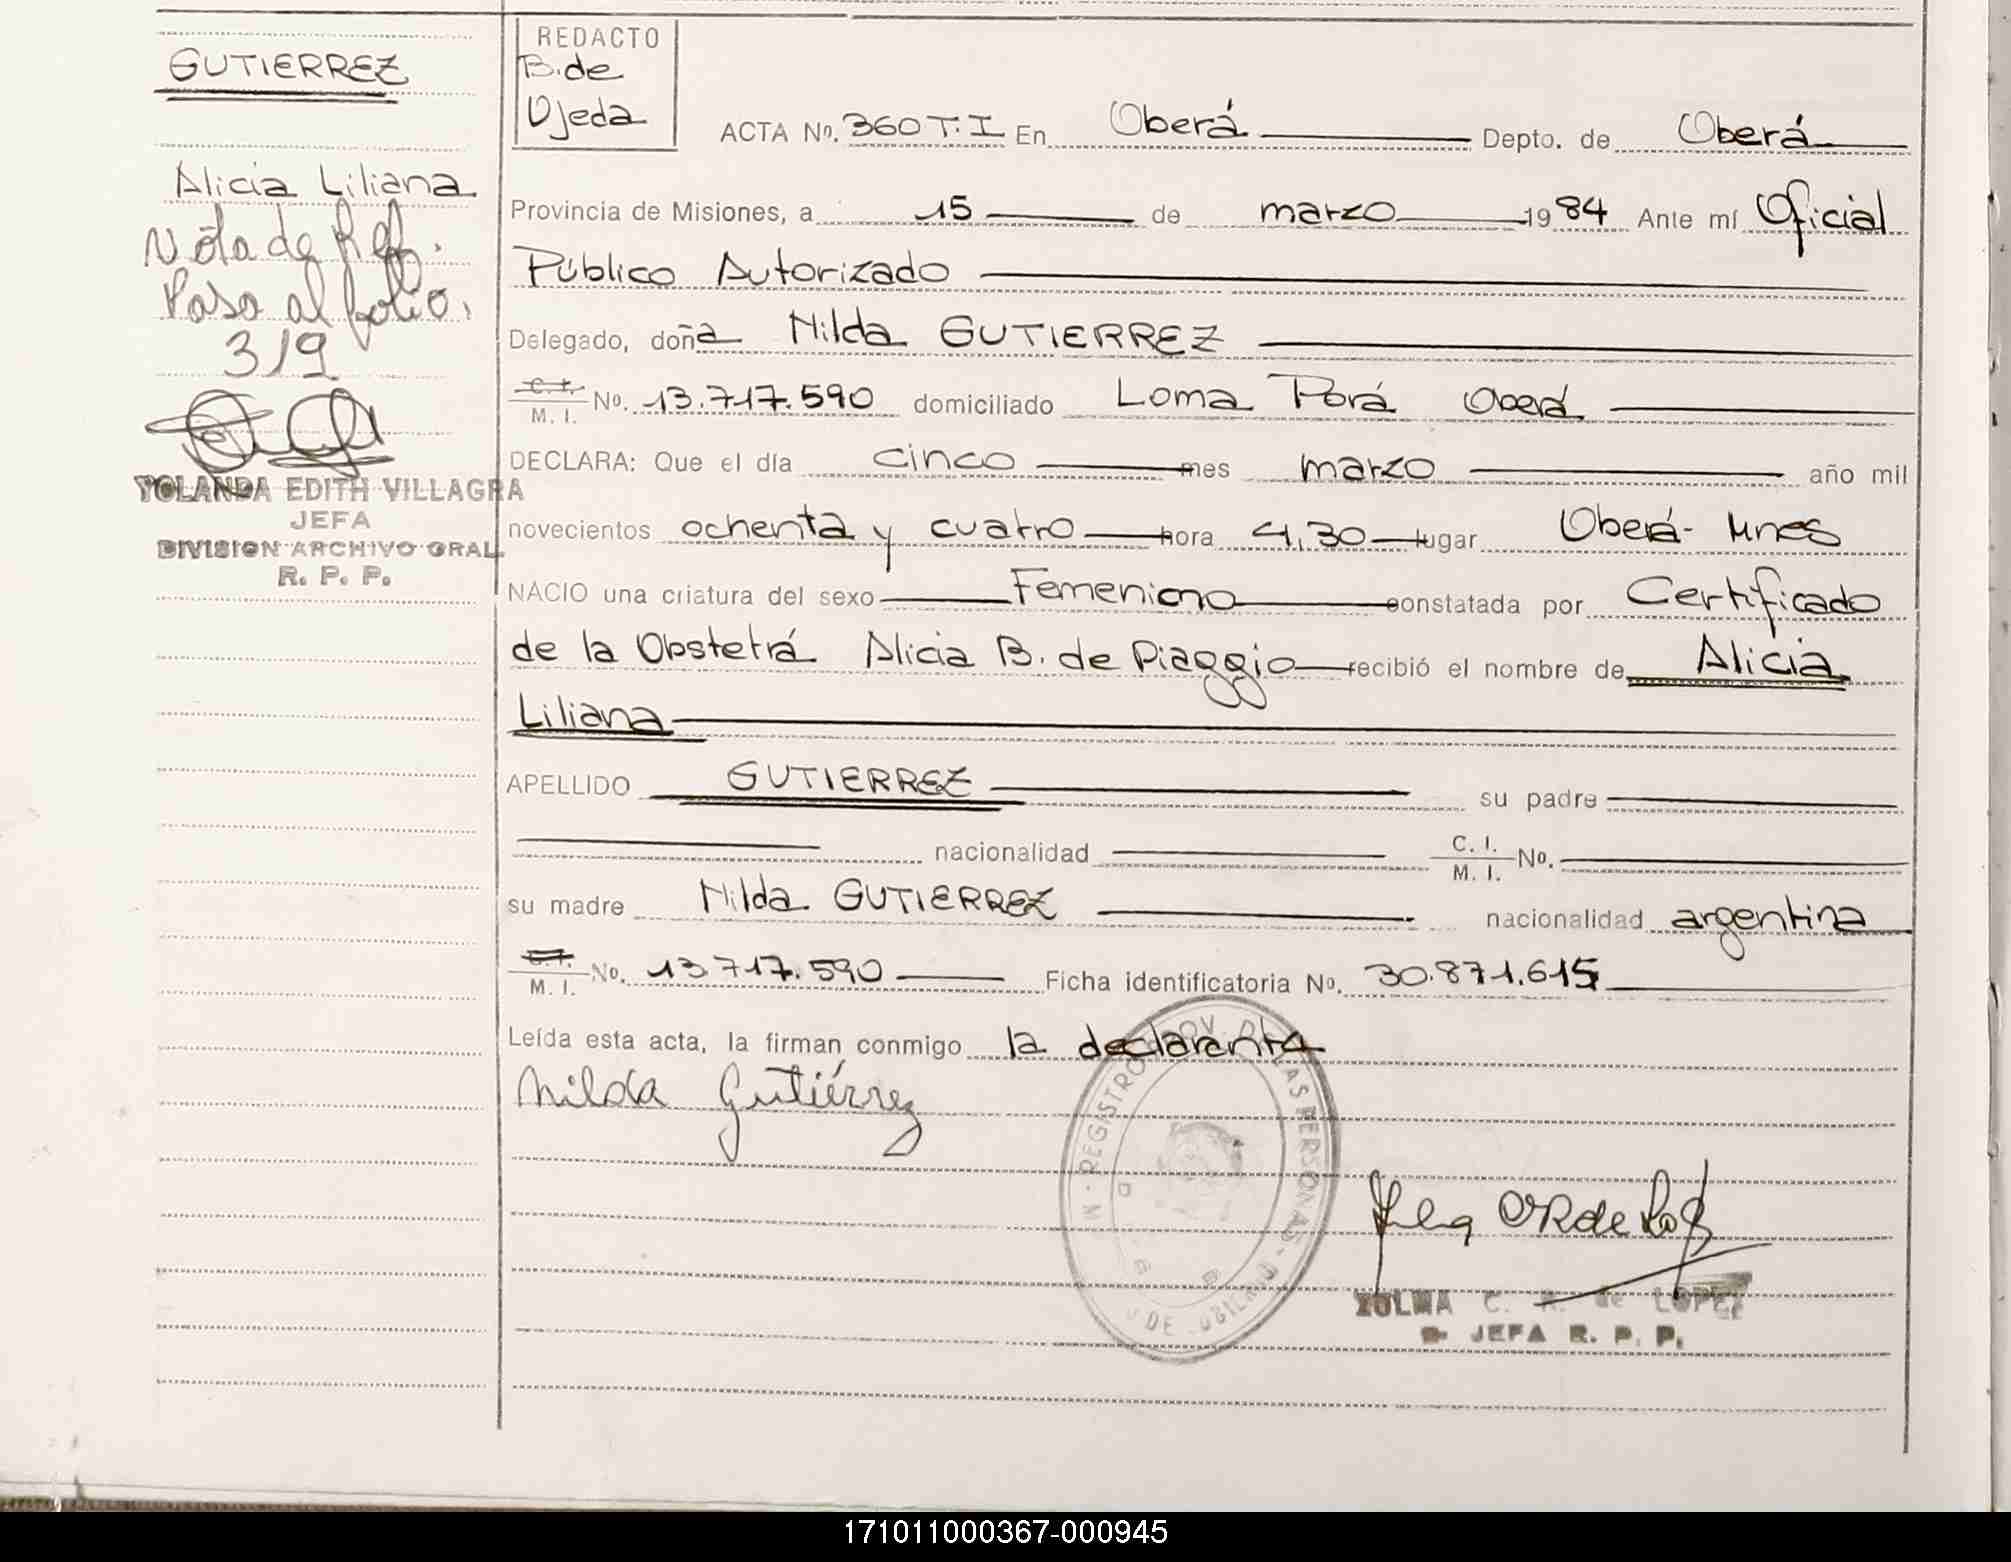 GUTIERREZ
Alicia Liliana
Nota de Ref.
Pasa al folio.
319
YOLANDA EDITH VILLAGRA
JEFA
DIVISION ARCHIVO GRAL
R. P. P.
REDACTO
B. de
Ojeda
ACTA No. 360 T. I En Oberá Depto. de Oberá
Provincia de Misiones, a 15 de marzo 1984 Ante mí Oficial
Público Autorizado
Delegado, doña Nilda GUTIERREZ
C. I. M. I. No. 13.717.590 domiciliado Loma Porá Oberá
DECLARA: Que el día cinco mes marzo año mil
novecientos ochenta y cuatro hora 4,30 lugar Oberá- Mnes
NACIO una criatura del sexo Femenino constatada por Certificado
de la Obstetrá Alicia B. de Piaggio recibió el nombre de Alicia
Liliana
APELLIDO GUTIERREZ su padre
nacionalidad C. I. M. I. No.
su madre Nilda GUTIERREZ nacionalidad argentina
C. I. M. I. No. 13.717.590 Ficha identificatoria No. 30.871.615
Leída esta acta, la firman conmigo la declarante
Nilda Gutiérrez
REGISTRO PROV. DE LAS PERSONAS
ZULMA C. R. de LOPEZ
JEFA R. P. P.
171011000367-000945